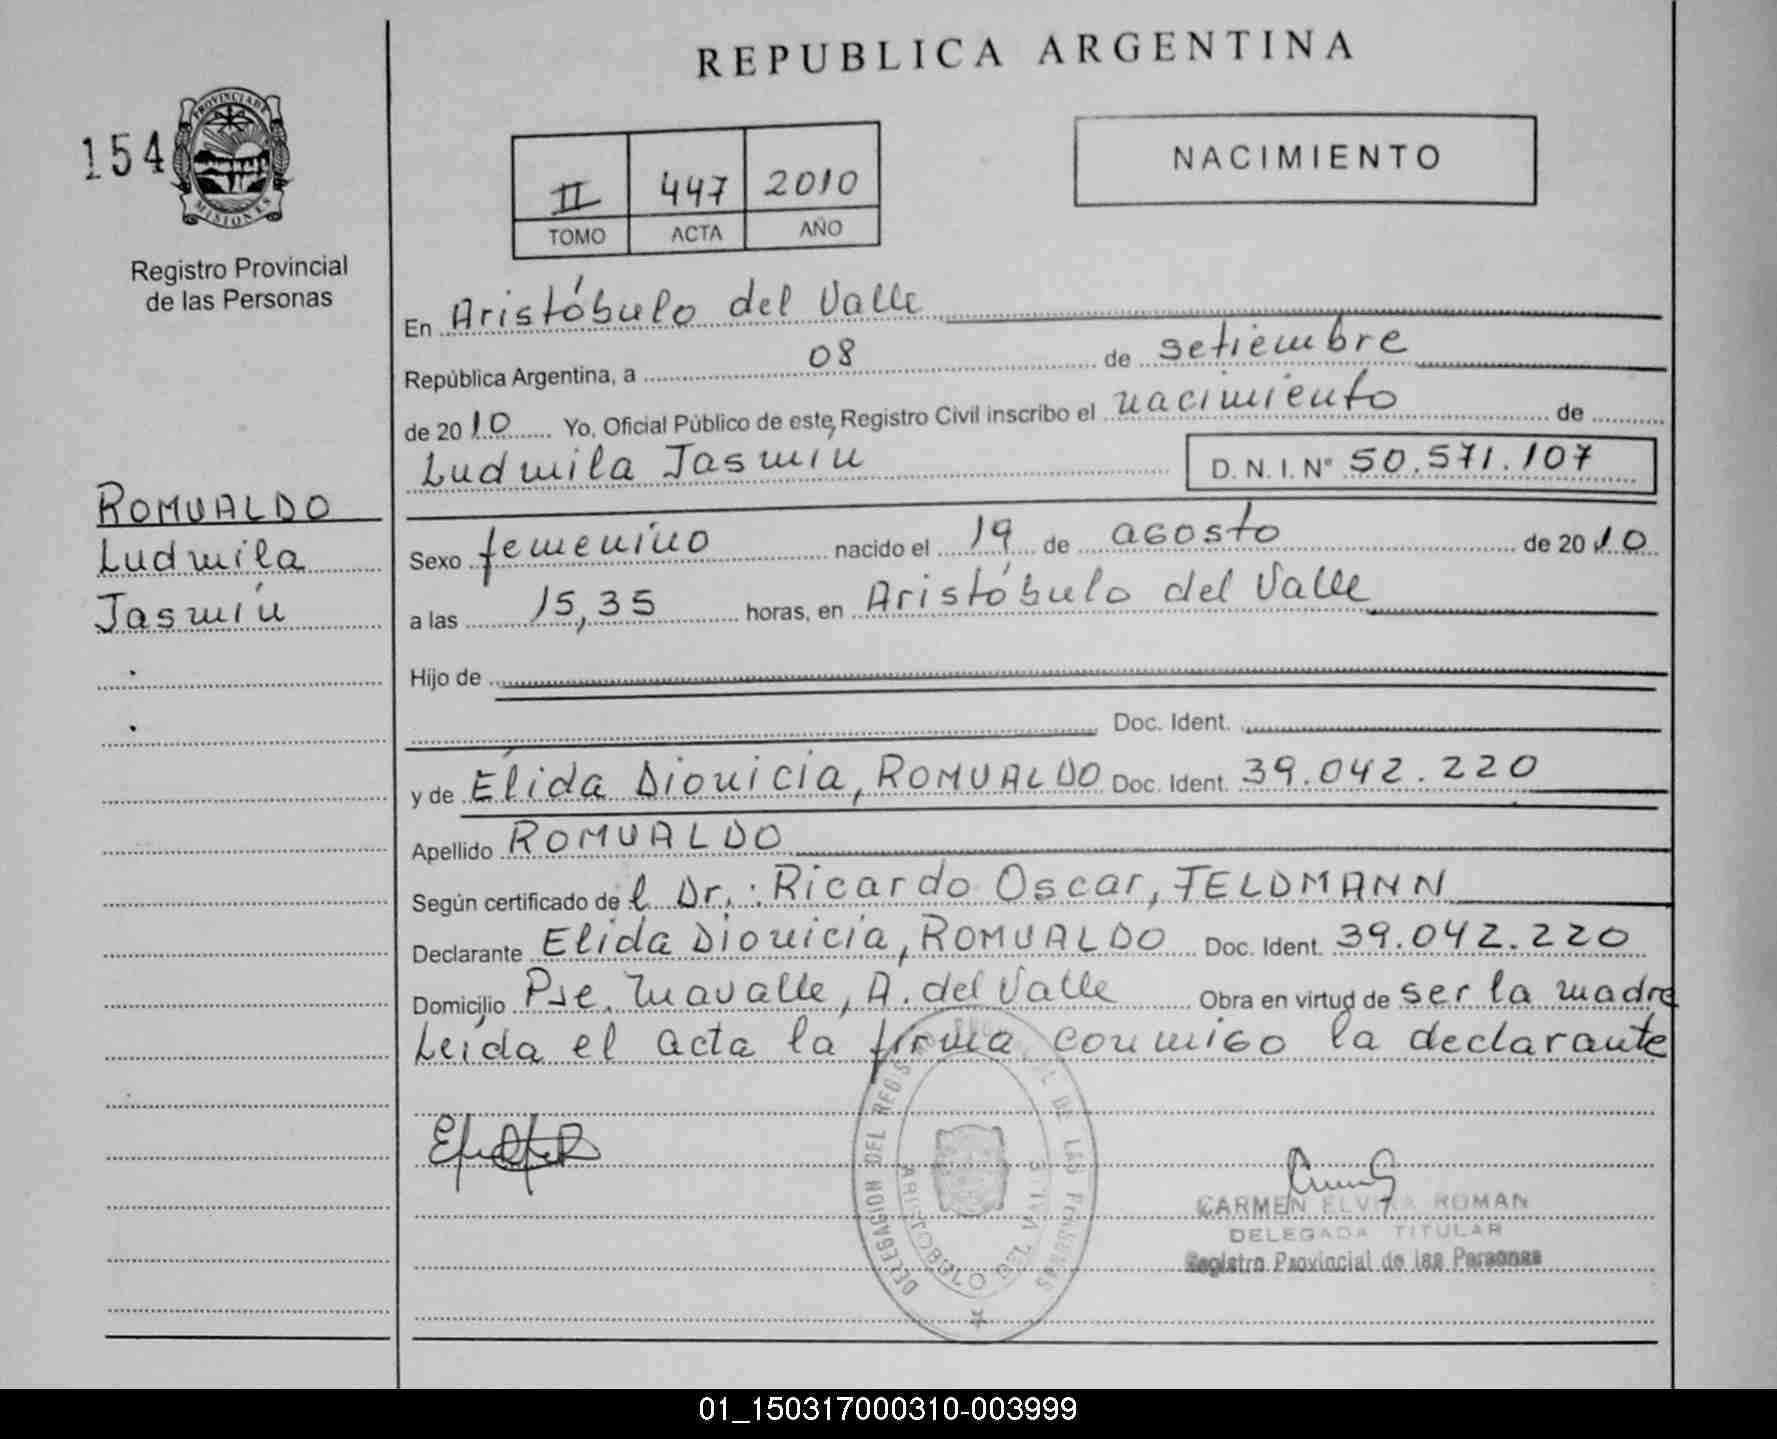 REPUBLICA ARGENTINA
154
PROVINCIA DE
MISIONES
Registro Provincial
de las Personas
II 447 2010
TOMO ACTA AÑO
NACIMIENTO
En Aristóbulo del Valle
República Argentina, a 08 de setiembre
de 2010 Yo, Oficial Público de este Registro Civil inscribo el nacimiento de
Ludmila Jasmín D. N. I. N° 50.571.107
ROMUALDO
Ludmila
Jasmín
Sexo femenino nacido el 19 de agosto de 2010
a las 15,35 horas, en Aristóbulo del Valle
Hijo de
Doc. Ident.
y de Élida Dionicia, ROMUALDO Doc. Ident. 39.042.220
Apellido ROMUALDO
Según certificado de l Dr.: Ricardo Oscar, FELDMANN
Declarante Elida Dionicia, ROMUALDO Doc. Ident. 39.042.220
Domicilio Pje. Tuavalle, A. del Valle Obra en virtud de ser la madre
Leída el acta la firma conmigo la declarante
DELEGACION DEL REGISTRO DE LAS PERSONAS
ARISTOBULO DEL VALLE
CARMEN ELVIRA ROMAN
DELEGADA TITULAR
Registro Provincial de las Personas
01_150317000310-003999